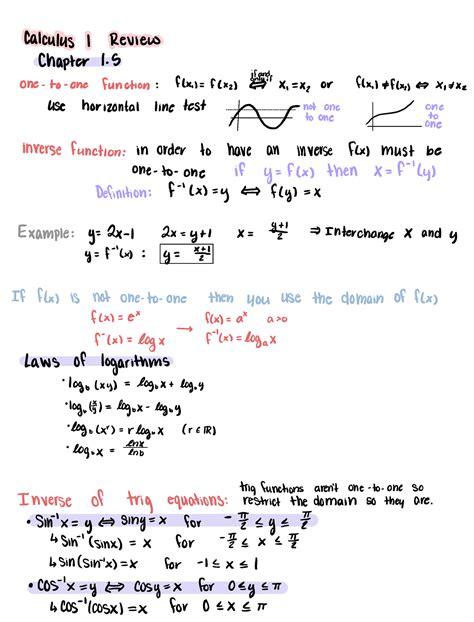 Calculus 1 Review
Chapter 1.5
one-to-one function: f(x₁) = f(x₂) if and only if ⟺ x₁ = x₂ or f(x₁) ≠ f(x₂) ⟺ x₁ ≠ x₂
use horizontal line test
not one to one
one to one
inverse function: in order to have an inverse f(x) must be
one-to-one if y = f(x) then x = f⁻¹(y)
Definition: f⁻¹(x) = y ⟺ f(y) = x
Example: y = 2x-1 2x = y+1 x = (y+1)/2 ⇒ Interchange x and y
y = f⁻¹(x) : y = (x+1)/2
If f(x) is not one-to-one then you use the domain of f(x)
f(x) = eˣ → f(x) = aˣ a>0
f⁻(x) = log x f⁻¹(x) = logₐx
Laws of logarithms
• log_b (xy) = log_b x + log_b y
• log_b (x/y) = log_b x - log_b y
• log_b (xʳ) = r log_b x (r ∈ ℝ)
• log_b x = lnx/lnb
Inverse of trig equations: trig functions aren't one-to-one so
restrict the domain so they are.
• Sin⁻¹x = y ⟺ siny = x for -π/2 ≤ y ≤ π/2
↳ Sin⁻¹(sinx) = x for -π/2 ≤ x ≤ π/2
↳ Sin(sin⁻¹x) = x for -1 ≤ x ≤ 1
• COS⁻¹x = y ⟺ cosy = x for 0 ≤ y ≤ π
↳ COS⁻¹(cosx) = x for 0 ≤ x ≤ π